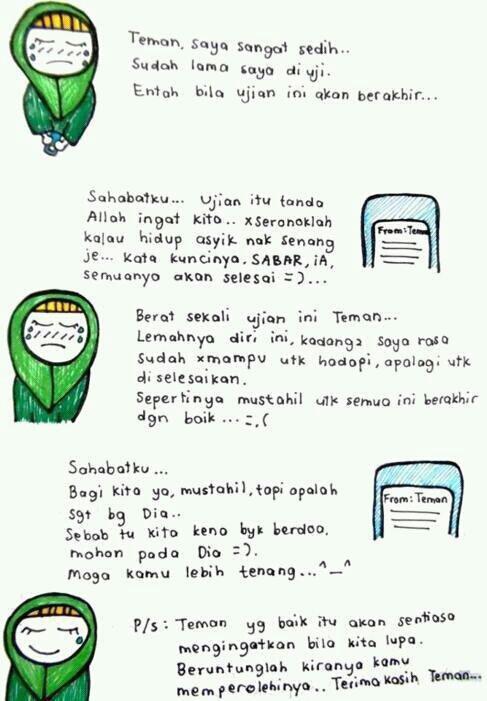 Teman, saya sangat sedih..
Sudah lama saya di uji.
Entah bila ujian ini akan berakhir...
Sahabatku... Ujian itu tanda
Allah ingat kita.. xseronoklah
kalau hidup asyik nak senang
je... Kata kuncinya. SABAR, iA,
semuanya akan selesai =)...
From: Teman
Berat sekali ujian ini Teman...
Lemahnya diri ini, kadang2 saya rasa
sudah xmampu utk hadapi, apalagi utk
di selesaikan.
Sepertinya mustahil utk semua ini berakhir
dgn baik ...=,(
Sahabatku...
Bagi kita ya, mustahil, tapi apalah
sgt bg Dia..
Sebab tu kita kena byk berdoa,
mohon pada Dia =).
Moga kamu lebih tenang...^_^
From: Teman
P/s: Teman yg baik itu akan sentiasa
mengingatkan bila kita lupa.
Beruntunglah kiranya kamu
memperolehinya.. Terima kasih Teman...